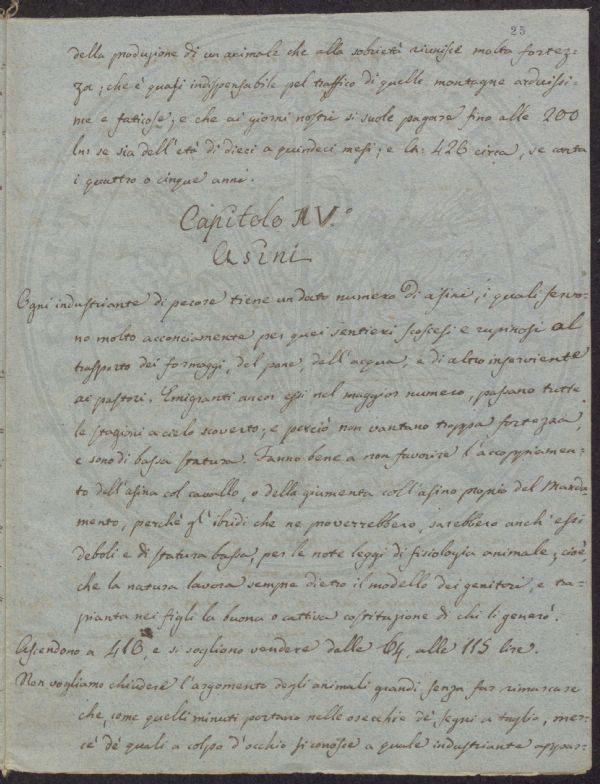 25
della produzione di un animale che alla sobrietà riunisce molta fortez-
za; che è quasi indispensabile pel traffico di quelle montagne arduissi-
me e faticose; e che ai giorni nostri si suole pagare fino alle 200
lire se sia dell'età di dieci a quindeci mesi; e lir: 426 circa, se conta
i quattro o cinque anni.
Capitolo IV.°
Asini
Ogni industriante di pecore tiene un dato numero di asini, i quali servo-
no molto acconciamente per quei sentieri scoscesi e rupinosi al
trasporto dei formaggi, del pane, dell'acqua, e di altro inserviente
ai pastori. Emigranti ancor essi nel maggior numero, passano tutte
le stagioni a cielo scoverto; e perciò non vantano troppa fortezza,
e sono di bassa statura. Fanno bene a non favorire l'accoppiamen-
to dell'asina col cavallo, o della giumenta coll'asino proprio del Manda-
mento, perchè gl'ibridi che ne proverrebbero, sarebbero anch'essi
deboli e di statura bassa, per le note leggi di fisiologia animale; cioè,
che la natura lavora sempre dietro il modello dei genitori, e tra-
pianta nei figli la buona o cattiva costituzione di chi li generò.
Ascendono a 416, e si sogliono vendere dalle 64, alle 115 lire.
Non vogliamo chiudere l'argomento degli animali grandi senza far rimarcare
che, come quelli minuti portano nelle orecchie de' segni a taglio, mer-
cè de' quali a colpo d'occhio si conosce a quale industriante appar-